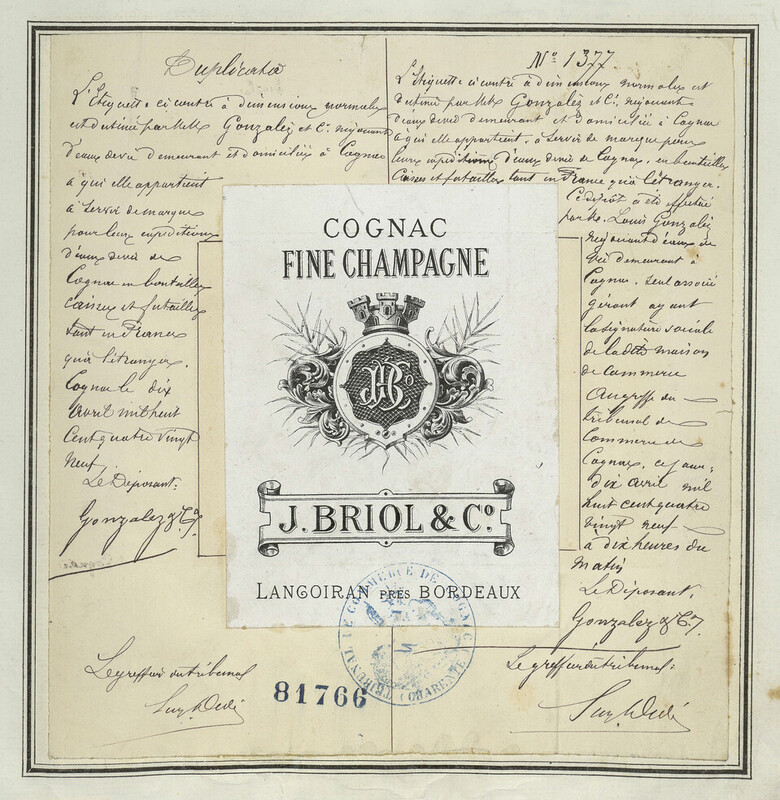 Duplicata
L'Etiquette ci contre à dimensions normales
est destinée par MM Gonzalez et Cie, négociant
d'eaux de vie demeurant et domiciliés à Cognac
à qui elle appartient
à servir de marque
pour leurs expéditions
d'eaux de vie de
Cognac en bouteilles
caisses et futailles
tant en France
qu'à l'étranger.
Cognac le dix
avril mil huit
cent quatre vingt
neuf.
Le Déposant:
Gonzalez & Cie
Le greffier du tribunal
No 1377.
L'Etiquette ci contre à dimensions normales est
destinée par MM Gonzalez et Cie, négociant
d'eaux de vie demeurant et domiciliés à Cognac
à qui elle appartient, à servir de marque pour
leurs expéditions d'eaux de vie de Cognac, en bouteilles
caisses et futailles tant en France qu'à l'étranger.
Ce dépôt a été effectué
par Mr. Louis Gonzalez
négociant d'eaux de
vie demeurant à
Cognac, seul associé
gérant ayant
la signature sociale
de la dite maison
de commerce
au greffe du
tribunal de
Commerce de
Cognac, ce jour,
dix avril mil
huit cent quatre
vingt neuf
à dix heures du
matin
Le Déposant,
Gonzalez & Cie
Le greffier du tribunal:
COGNAC
FINE CHAMPAGNE
J. BRIOL & Co.
LANGOIRAN PRÈS BORDEAUX
TRIBUNAL DE COMMERCE DE COGNAC (CHARENTE)
81766